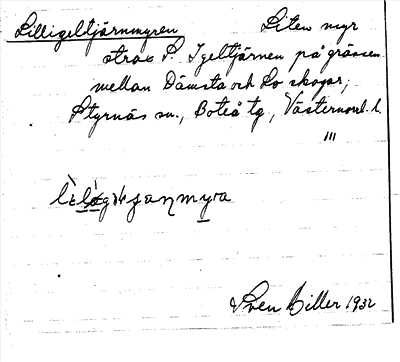 Lilligeltjärnmyren Liten myr
strax S. Igeltjärnen på gränsen
mellan Dämsta och Lo skogar;
Styrnäs sn., Boteå tg, Västernorrl. l.
III
Sven Hiller 1932